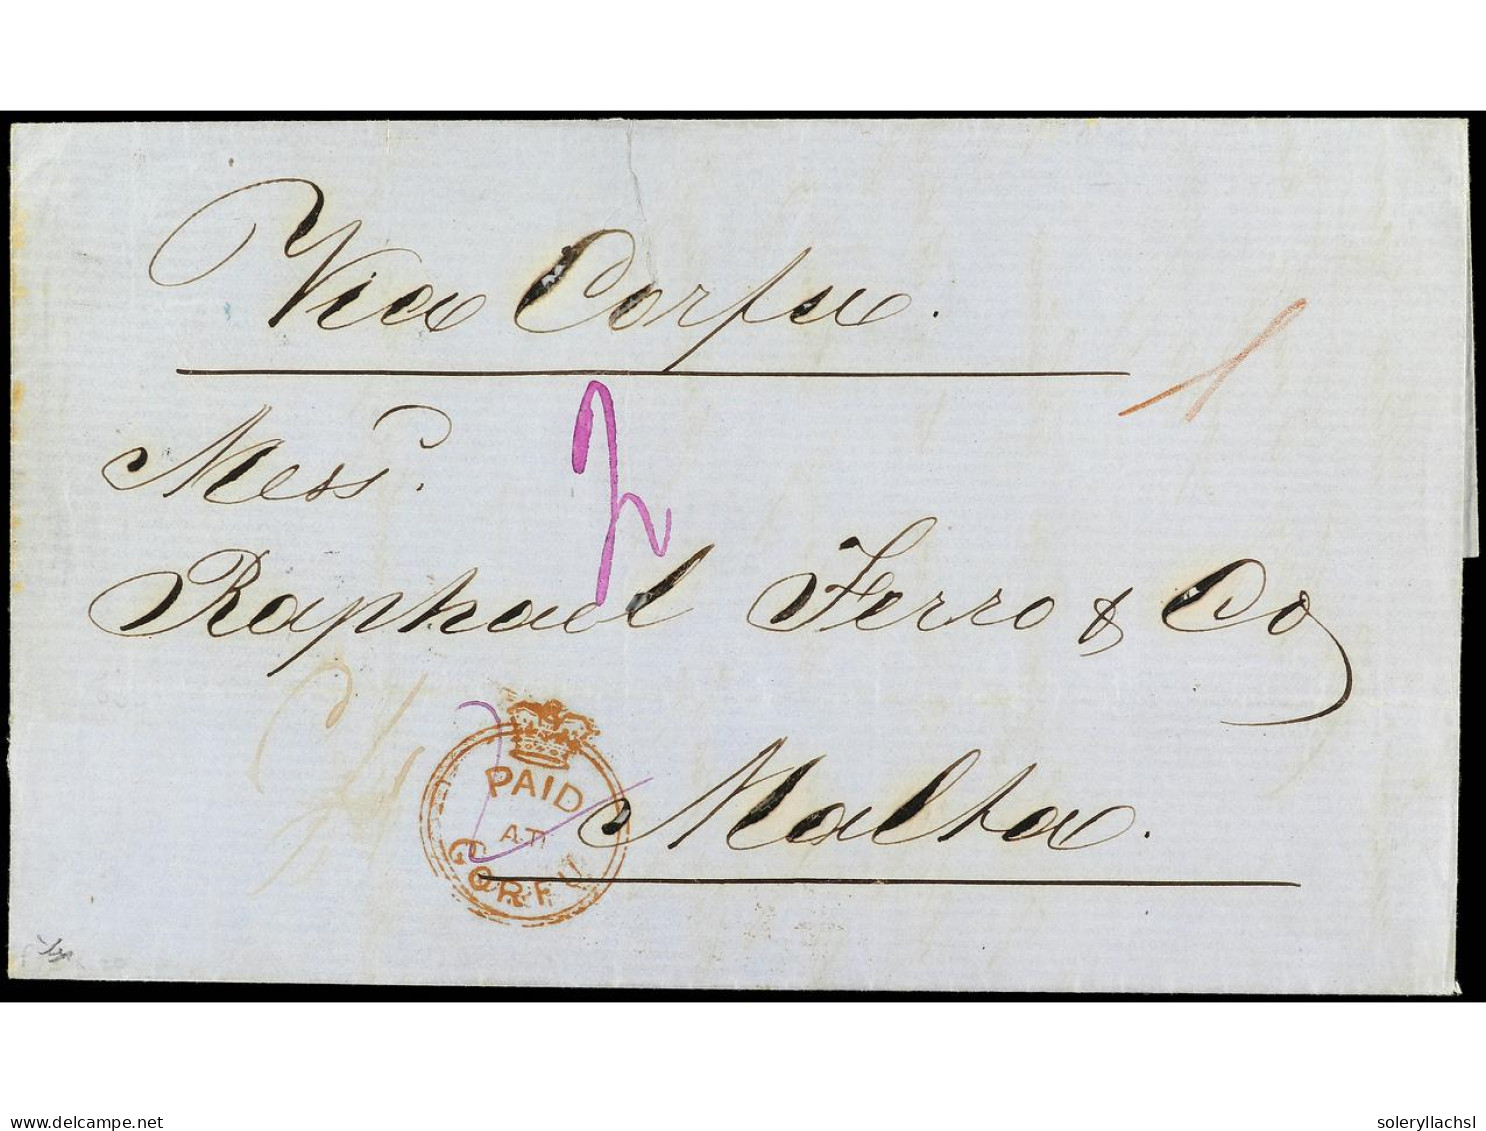 Via Corfu.
Mess.
Raphael Ferro & Co
Malta.
PAID
AT
CORFU
delcampe.net
soleryllachsl